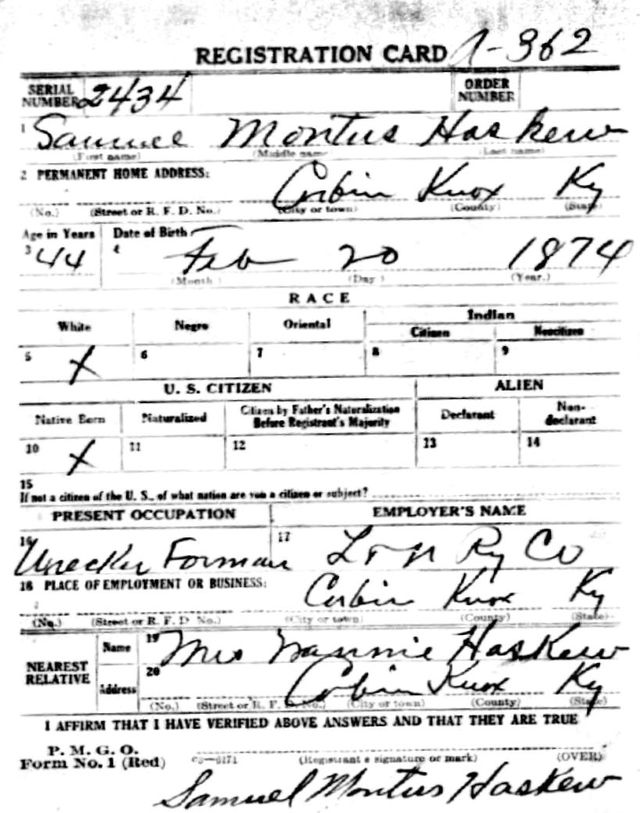 REGISTRATION CARD A-362
SERIAL NUMBER 2434 ORDER NUMBER
1 Samuel Montus Haskew
(First name) (Middle name) (Last name)
2 PERMANENT HOME ADDRESS: Corbin Knox Ky
(No.) (Street or R. F. D. No.) (City or town) (County) (State)
Age in Years Date of Birth
3 44 4 Feb 20 1874
(Month) (Day) (Year.)
RACE
White Negro Oriental Indian
Citizen Noncitizen
5 X 6 7 8 9
U. S. CITIZEN ALIEN
Native Born Naturalized Citizen by Father's Naturalization Before Registrant's Majority Declarant Non-declarant
10 X 11 12 13 14
15
If not a citizen of the U. S., of what nation are you a citizen or subject?
PRESENT OCCUPATION EMPLOYER'S NAME
16 Wrecker Forman 17 L & N Ry Co
18 PLACE OF EMPLOYMENT OR BUSINESS: Corbin Knox Ky
(No.) (Street or R. F. D. No.) (City or town) (County) (State)
NEAREST RELATIVE Name 19 Mrs Nannie Haskew
Address 20 Corbin Knox Ky
(No.) (Street or R. F. D. No.) (City or town) (County) (State)
I AFFIRM THAT I HAVE VERIFIED ABOVE ANSWERS AND THAT THEY ARE TRUE
P. M. G. O.
Form No. 1 (Red) 03-6171 (Registrant's signature or mark) (OVER)
Samuel Montus Haskew